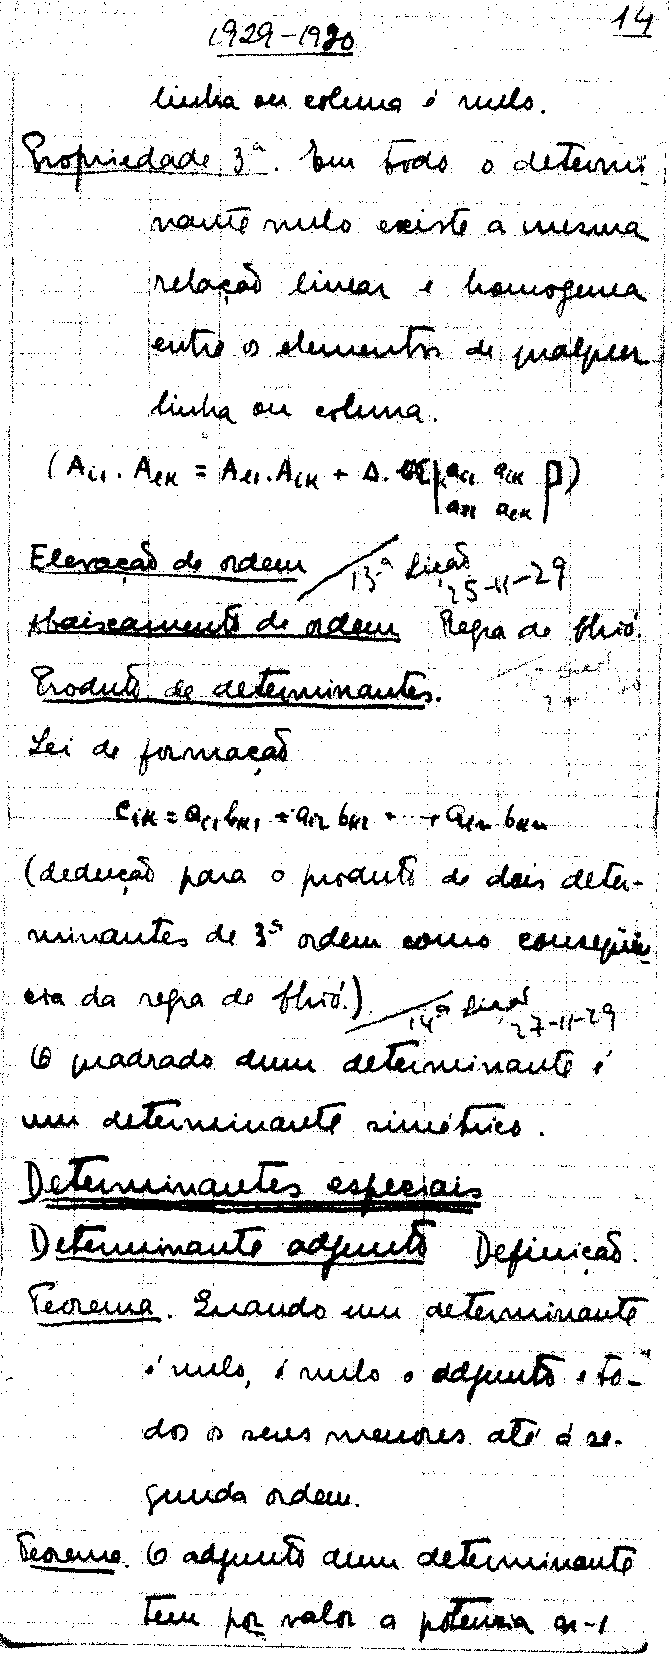 14
1929-1930
linha ou coluna é nulo.
Propriedade 3ª. Em todo o determi-
nante nulo existe a mesma
relação linear e homogenea
entre os elementos de qualquer
linha ou coluna.
(A_{ii} . A_{ek} = A_{ei} . A_{ik} + Δ.
Elevação de ordem 13ª Lição
25-11-29
Abaixamento de ordem Regra de Chió.
Produto de determinantes.
Lei de formação
c_{ik} = a_{i1} b_{k1} + a_{i2} b_{k2} + ... + a_{in} b_{kn}
(dedução para o produto de dois deter-
minantes de 3ª ordem como consequên-
cia da regra de Chió.) 14ª Lição
27-11-29
O quadrado dum determinante é
um determinante simétrico.
Determinantes especiais
Determinante adjunto Definição.
Teorema. Quando um determinante
é nulo, é nulo o adjunto e to-
dos os seus menores até á se-
gunda ordem.
Teorema. O adjunto dum determinante
tem por valor a potencia n-1